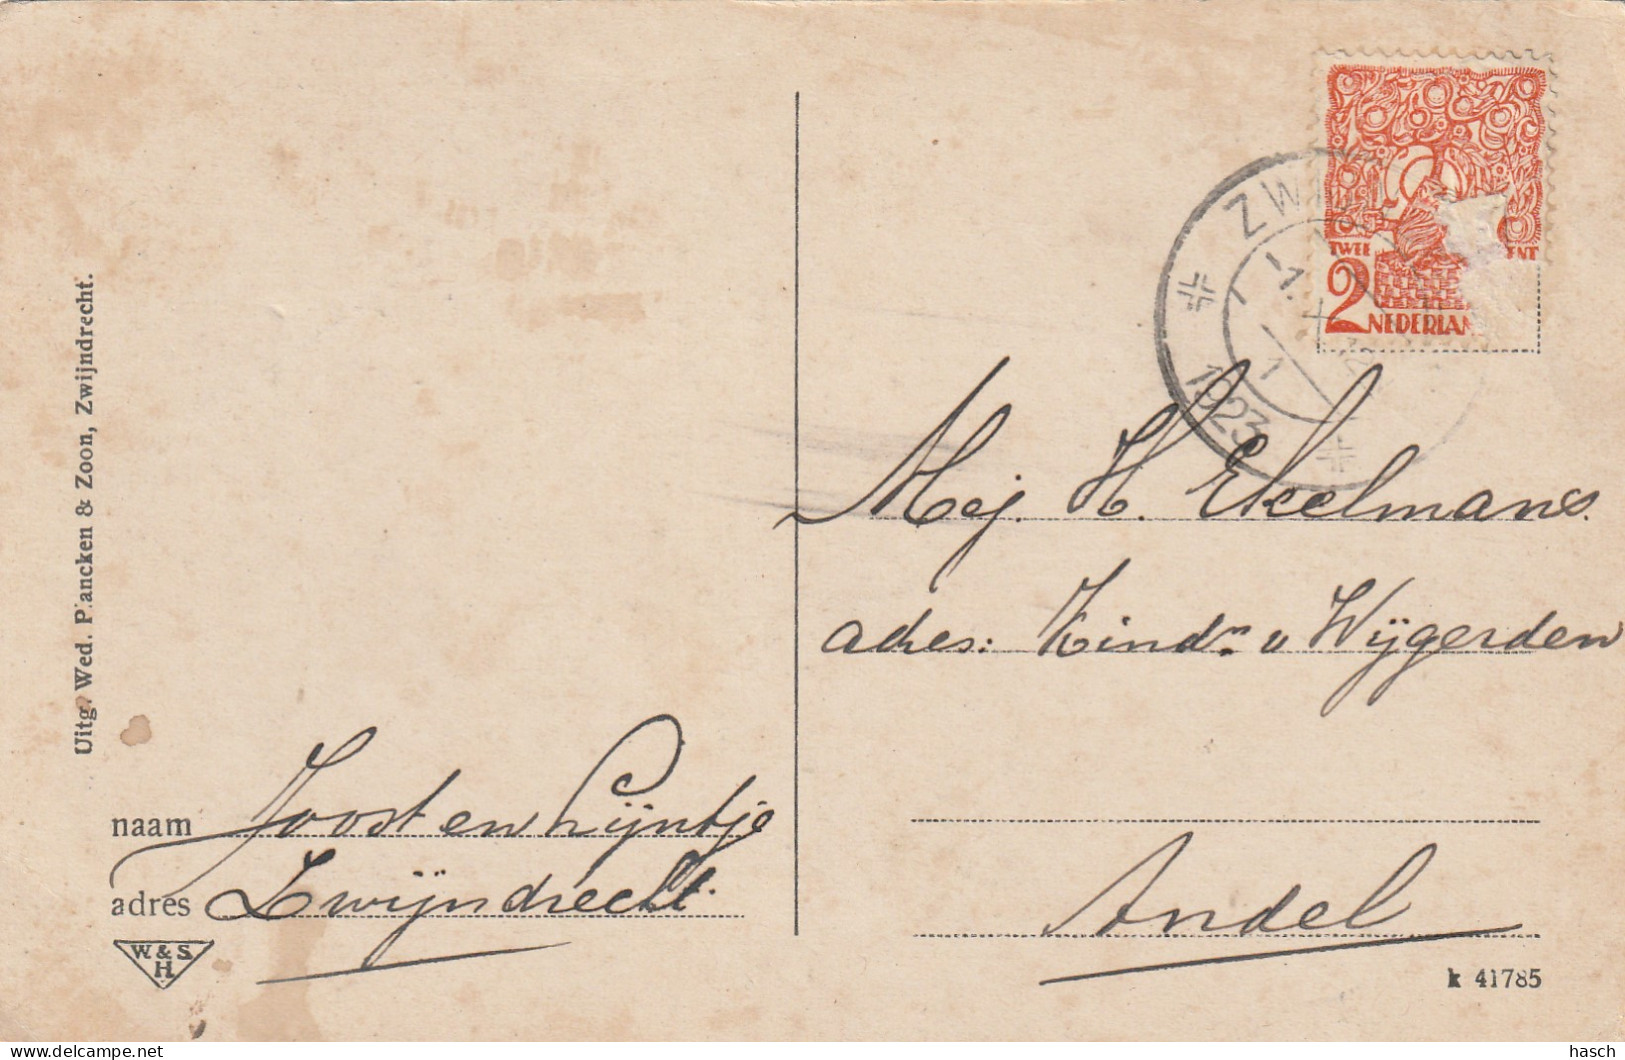 Uitg. Wed. P.ancken & Zoon, Zwijndrecht.
TWEE
2
NEDERLAN
ZW
1. X
1
1923
Mej. H. Ekelmans.
adres: Kindn v Wijgerden
Andel
naam Joost en Lijntje
adres Zwijndrecht.
W. & S.
H
k 41785
delcampe.net
hasch